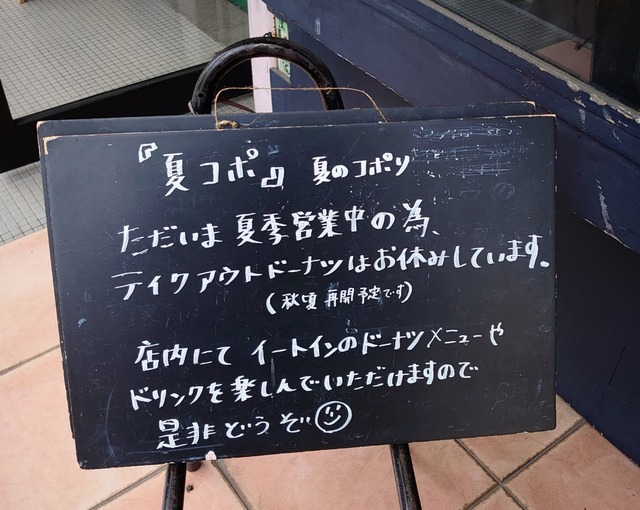 『夏コポ』 夏のコポリ
ただいま 夏季営業中の為、
テイクアウトドーナツはお休みしています。
(秋頃 再開予定です)
店内にて イートインのドーナツメニューや
ドリンクを楽しんでいただけますので
是非どうぞ